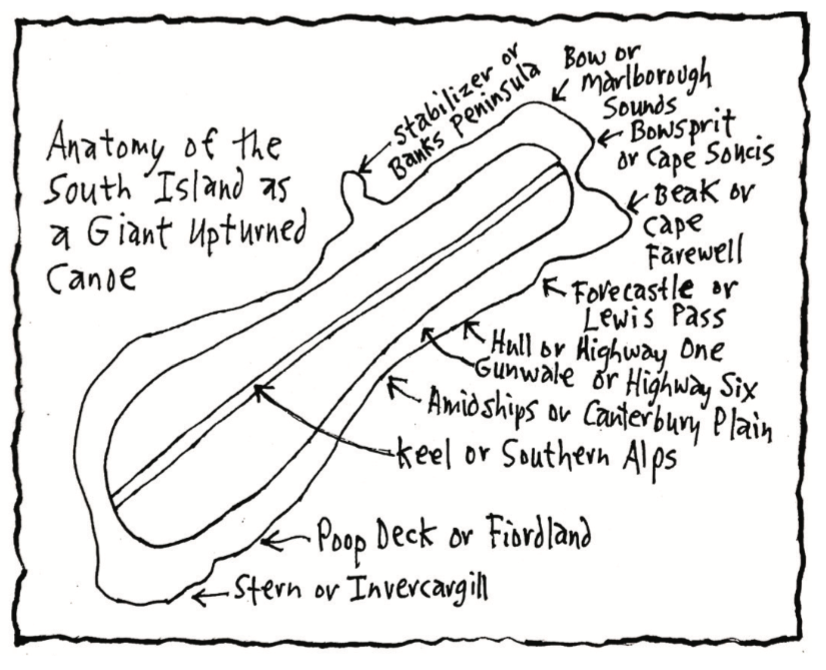 Anatomy of the
South Island as
a Giant Upturned
Canoe
Stabilizer or
Banks Peninsula
Bow or
Marlborough
Sounds
Bowsprit
or Cape Soucis
Beak or
Cape
Farewell
Forecastle or
Lewis Pass
Hull or Highway One
Gunwale or Highway Six
Amidships or Canterbury Plain
Keel or Southern Alps
Poop Deck or Fiordland
Stern or Invercargill